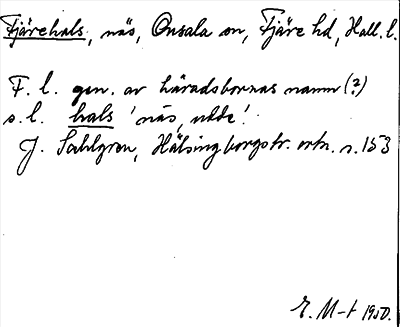 Fjärehals, näs, Onsala sn, Fjäre hd, Hall. l.
F. l. gen. av häradsbornas namn (?)
s. l. hals 'näs, udde'.
J. Sahlgren, Hälsingborgstr. ortn. s. 153
E. M-t 1950.